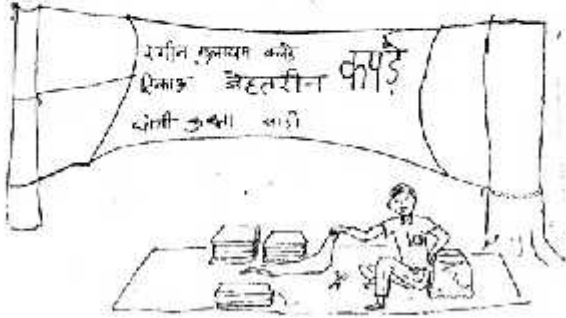 रंगीन मुलायम कपड़े
टिकाऊ बेहतरीन कपड़े
धोती-कुरता साड़ी